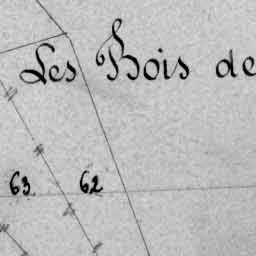 Les Bois de
63 62